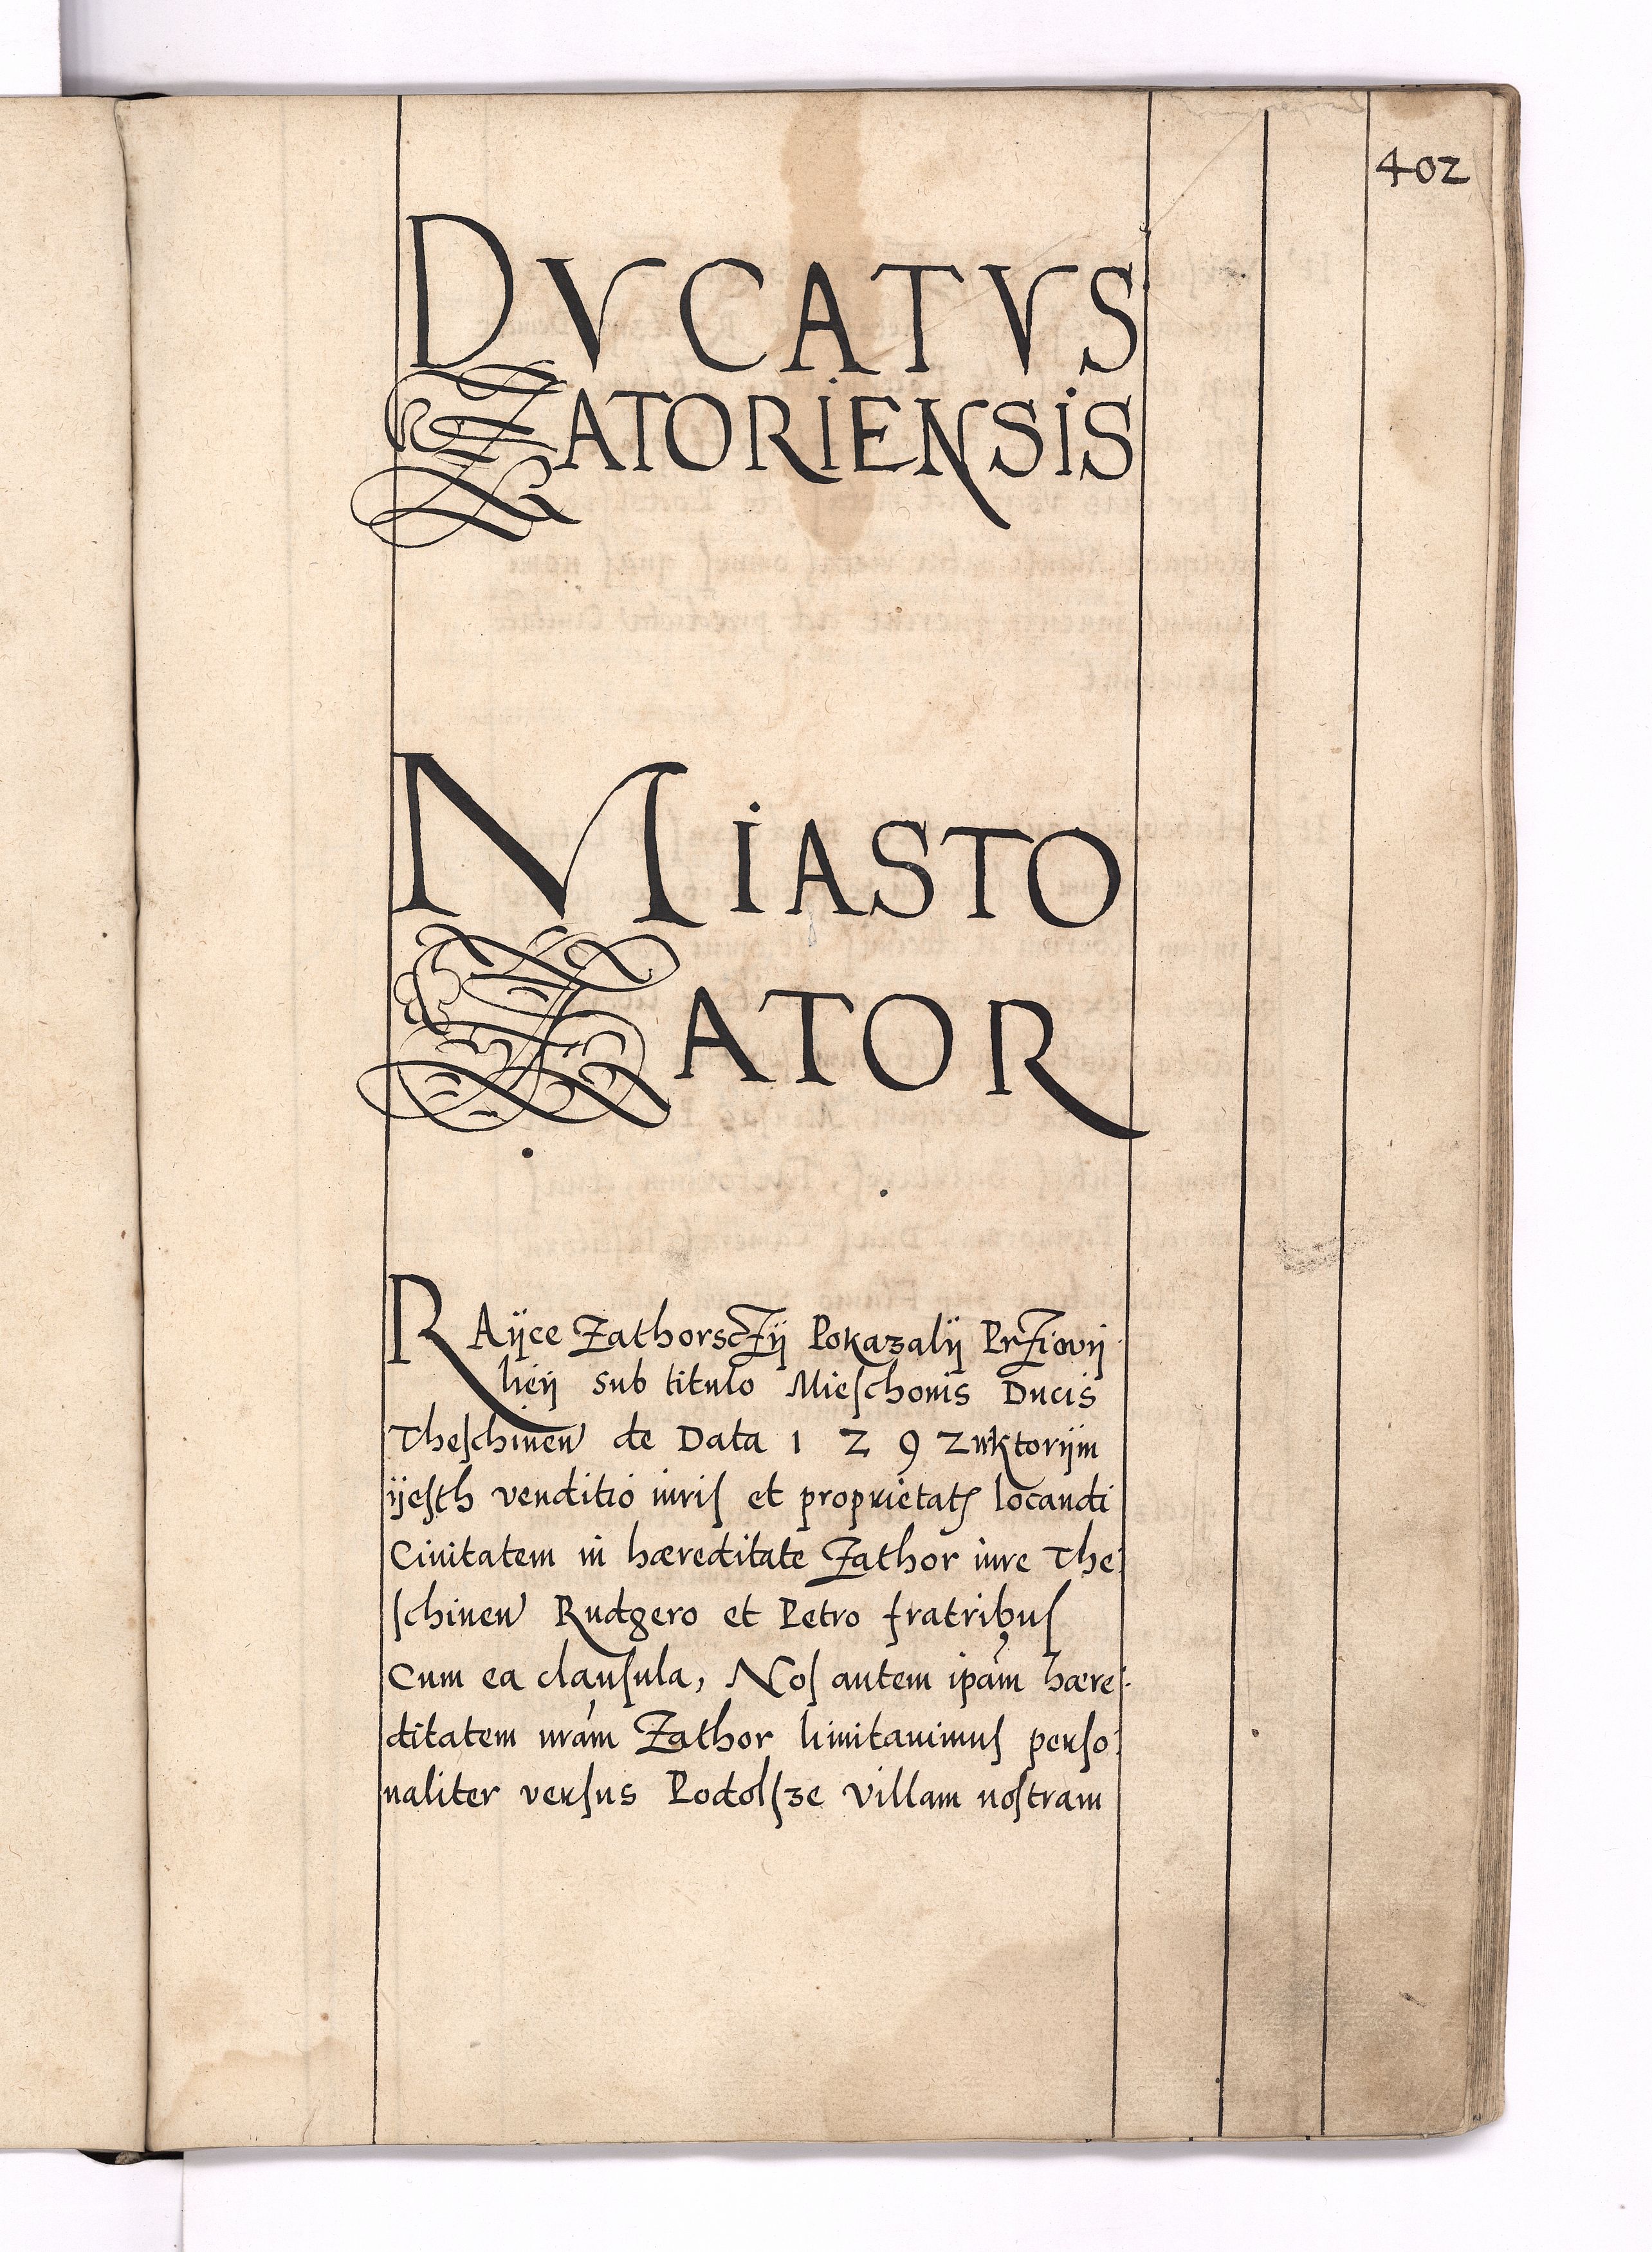 402
DVCATVS
ZATORIENSIS
MIASTO
ZATOR
RAÿce Zathorsczÿ Pokazalÿ Prziovÿ
lieÿ sub titulo Mieſchonis Ducis
Theſchinen de Data 1 2 9 2 wktorÿm
ÿeſth venditio iuriſ et proprietatꝭ locandi
Ciuitatem in hæreditate Zathor iure The:
ſchinen Rudgero et Petro fratribuſ
Cum ea clauſula, Noſ autem ipam hære:
ditatem nram Zathor limitauimuſ perſo:
naliter verſus Podolſze villam noſtram